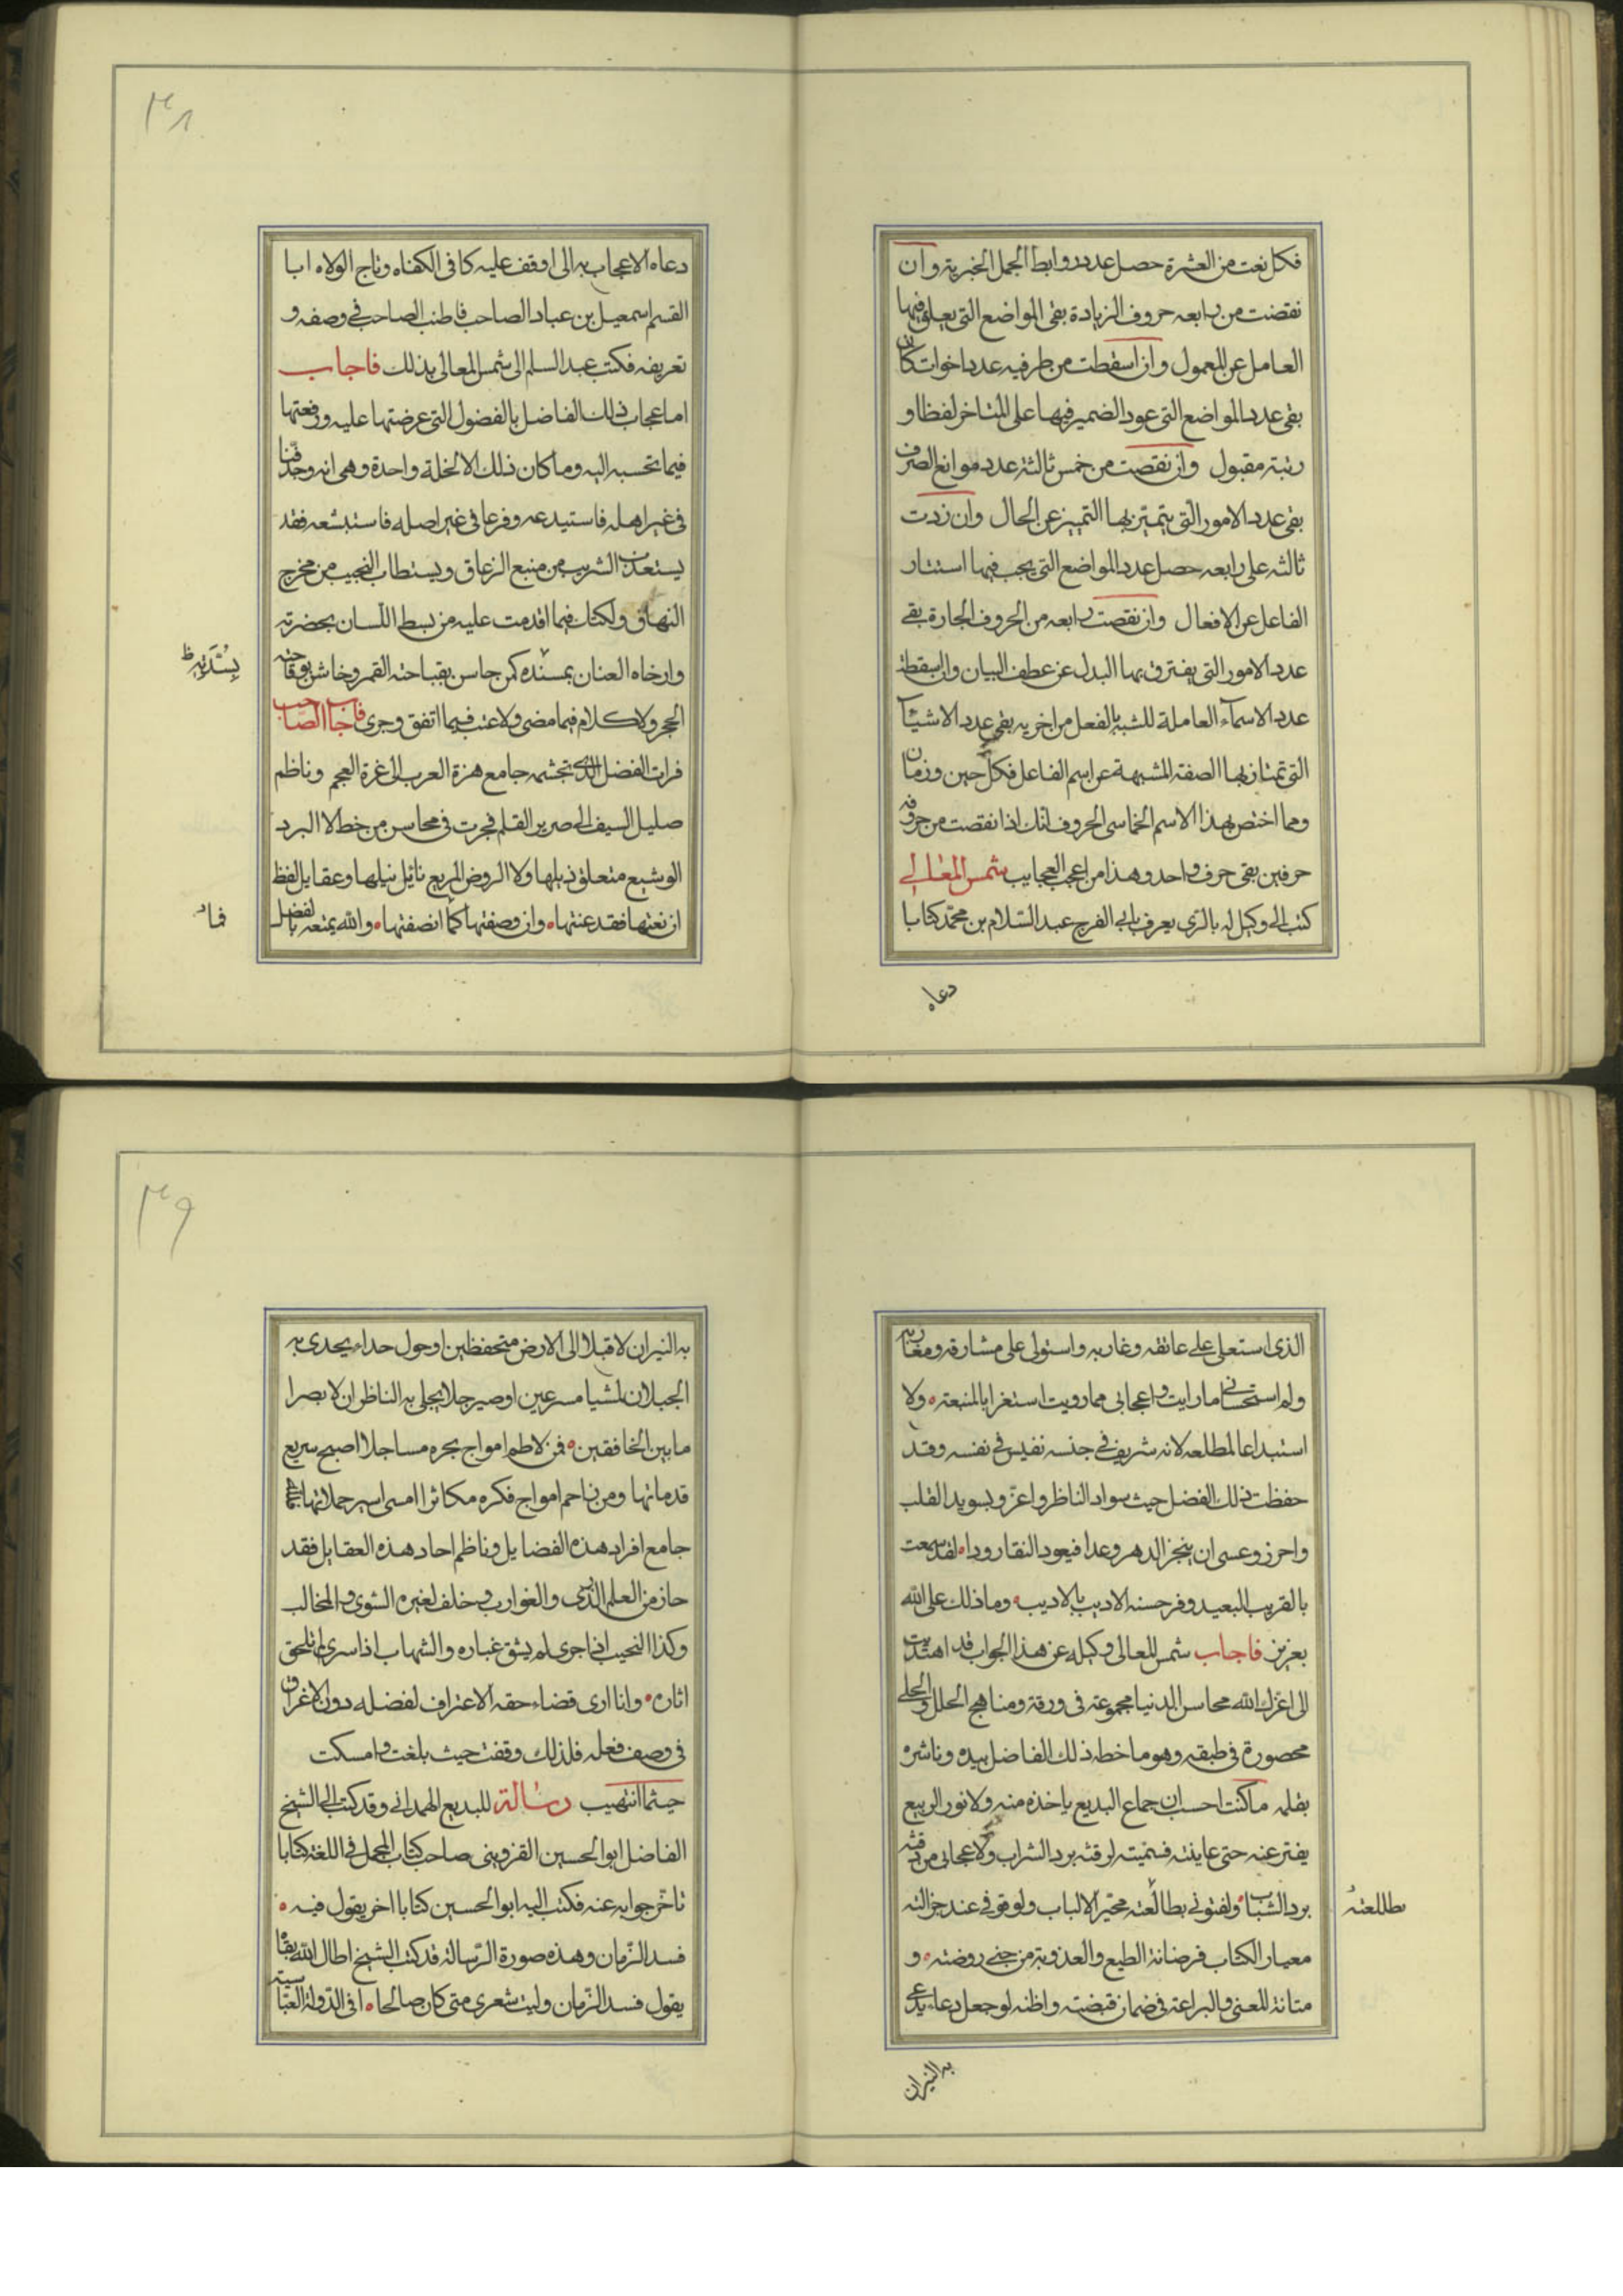 فكل نعت من العشرة حصل عدد روابط الجمل الخبرية وان
نقصت من رابعه حروف الزيادة بقى المواضع التى يعلق فيها
العامل عن المعمول وان اسقطت من طرفيه عدد اخوات كان
بقى عدد المواضع التى عود الضمير فيها على المتاخر لفظا و
رتبة مقبول وان نقصت من خمس ثالثة عدد موانع الصرف
بقى عدد الامور التى يتميّز بها التمييز عن الحال وان زدت
ثالثه على رابعه حصل عدد المواضع التى يجب فيها استتار
الفاعل عن الافعال وان نقصت رابعه من الحروف الجارة بقے
عدد الامور التى يفترق بها البدل عن عطف البيان وان اسقطت
عدد الاسمآء العاملة للشبه بالفعل من اخريه بقى عدد الاشيآ
التى تمتاز بها الصفة المشبهة عن اسم الفاعل فكل حين وزمان
ومما اختص بهذا الاسم الخماسى الحروف انك اذا نقصت من حروفه
حرفين بقى حرف واحد وهذا من اعجب العجايب شمس المعالے
كتب الى وكيل له بالرى يعرف بابى الفرج عبد السّلام بن محمّد كتابا
دعاه
٣٨
دعاه الاعجاب به الى اوقف عليه كافى الكفاه وتاج الولاه ابا
القسم اسمعيل بن عباد الصاحب فاطنب الصاحب فى وصفه و
تعريفه فكتب عبد السلم الى شمس المعالى بذلك فاجاب
اما عجاب ذلك الفاضل بالفضول التى عرضتها عليه ورفعتها
فيما تحسبه اليه وما كان ذلك الا لخلة واحدة وهى انه وجد فنا
فى غير اهله فاستبدعه وفرعا فى غير اصله فاستبشعه فقد
يستعذب الشريب من منبع الزعاق ويستطاب النجيب من مخرج
النهاق ولكنك فيما اقدمت عليه من بسط اللّسان بحضرته
وارخاه العنان بمسنده كمن جاس بقباحته القمر وخاش بوقاحته
الحجر ولا كلام فيما مضى ولا عتب فيما اتفق وجرى فاجاب الصّاحب
قرات الفضل الذى تجشمه جامع هزة العرب الى غرة العجم وناظم
صليل السيف الى صرير القلم فجرت فى محاسن من خط لا البرد
الوشيع متعلق ذيلها ولا الروض المريع نائل نيلها وعقايل لفظ
ان نعتها فقد عنتها وان وصفتها كما انصفتها والله يمتعه بالفضل
الذى استعلى على عاتقه وغاربه واستولى على مشارقه ومغاربه
ولم استحسانى ما رايت واعجابى مما رويت استغرابا لمنبعته ولا
استبداعا لمطلعه لانه شريف فى جنسه نفيس فى نفسه وقد
حفظت ذلك الفضل حيث سواد الناظر واعزّ وبسويد القلب
واحرز وعسى ان ينجز الدهر وعدا فيعود النقار ودا لقد سمعت
بالقريب البعيد وفرحسنه الاديب بالاديب وما ذلك على الله
بعزيز فاجاب شمس المعالى وكيله عن هذا الجواب قد اهتديت
الى اعزك الله محاسن الدنيا مجموعة فى ورقة ومناهج الحلل والحلے
محصورة فى طبقه وهو ما خطه ذلك الفاضل بيده وناشره
بقلمه ما كنت احسب ان جماع البديع ياخذه منه ولا نور الربيع
يفتر عنه حتى عاينته فسميته لرقته برد الشراب ولاعجابى من دقته
برد الشباب ولفتونى بطالعته محيّر الالباب ولوقوفى عند جزالته
معيار الكتاب فرضانة الطبع والعذوبة من جنے روضته و
متانة المعنى والبراعة فى ضمان قبضته واظنه لو جعل دعاء يدعى
به النيران
٣٩
به النيران لاقبلا الى الارض متحفظين او حول حداء يحدى به
الجبلان لمشيا مسرعين او صير جلا يجلى به الناظران لابصرا
ما بين الخافقين فمن لاطم امواج بحره مساجلا اصبح سريع
قدماتها ومن زاحم امواج فكره مكاثرا امسى اسير حملاتها
جامع افراد هذه الفضايل وناظم احاد هذه العقايل فقد
حاز من العلم الذرى والغوارب وخلف لغيره الشوى والمخالب
وكذا النجيب اذا جرى لم يشق غباره والشهاب اذا سرى لم تلحق
اثاره وانا ارى قضاء حقه الاعتراف لفضله دون الاغراق
فى وصف فعله فلذلك وقفت حيث بلغت وامسكت
حيثما انتهيب رسالة للبديع الهمدانى وقد كتب الى الشيخ
الفاضل ابو الحسين القزوينى صاحب كتاب المجمل فى اللغة كتابا
تاخّر جوابه عنه فكتب اليه ابو الحسين كتابا اخر يقول فيه
فسد الزّمان وهذه صورة الرّسالة قد كتب الشيخ اطال الله بقاه
يقول فسد الزّمان وليت شعرى متى كان صالحا افى الدّولة العبّاسية